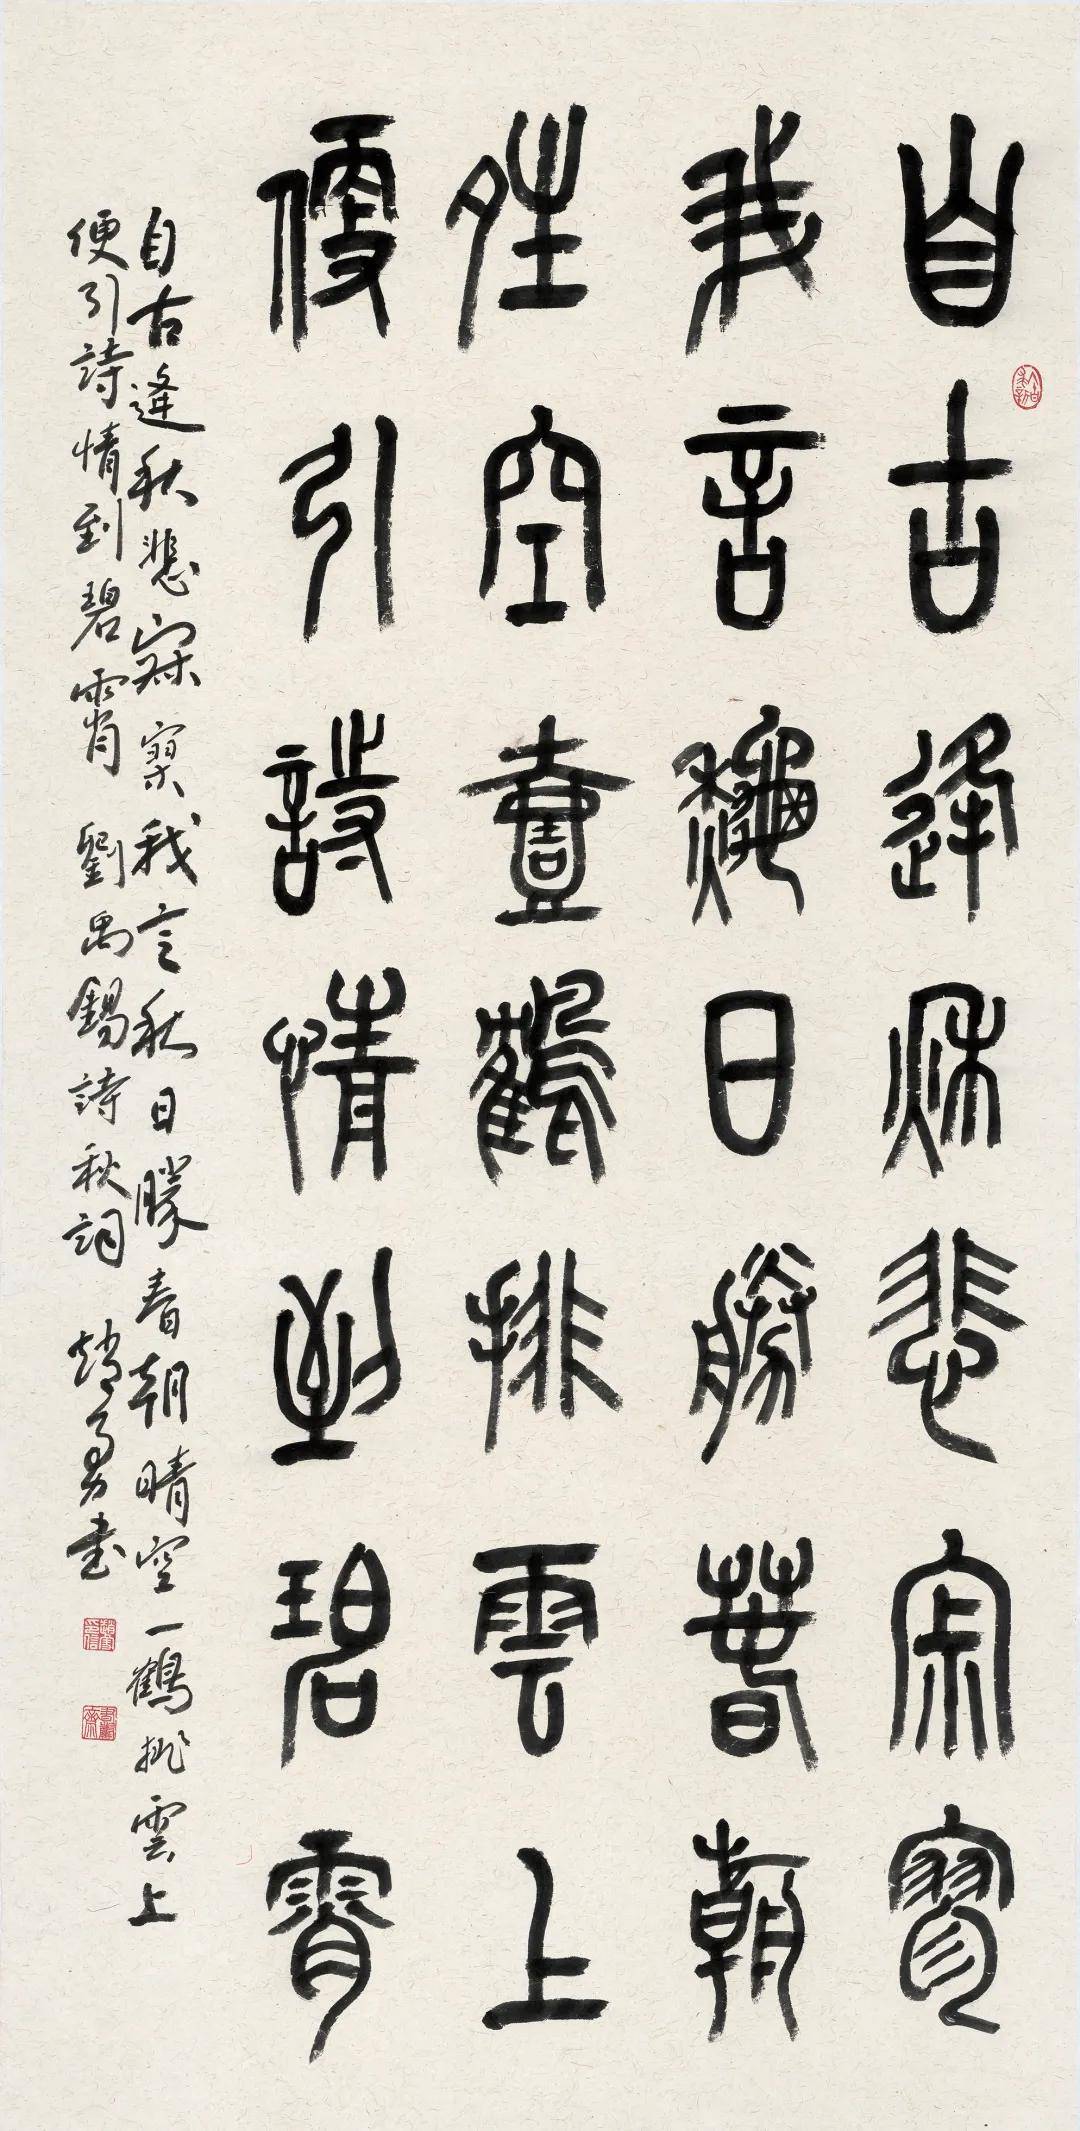 自古逢秋悲寂寥
我言秋日勝春朝
晴空壹鶴排雲上
便引詩情到碧霄
自古逢秋悲寂寥我言秋日勝春朝晴空一鶴排雲上
便引詩情到碧霄 劉禹錫詩秋詞 趙勇書